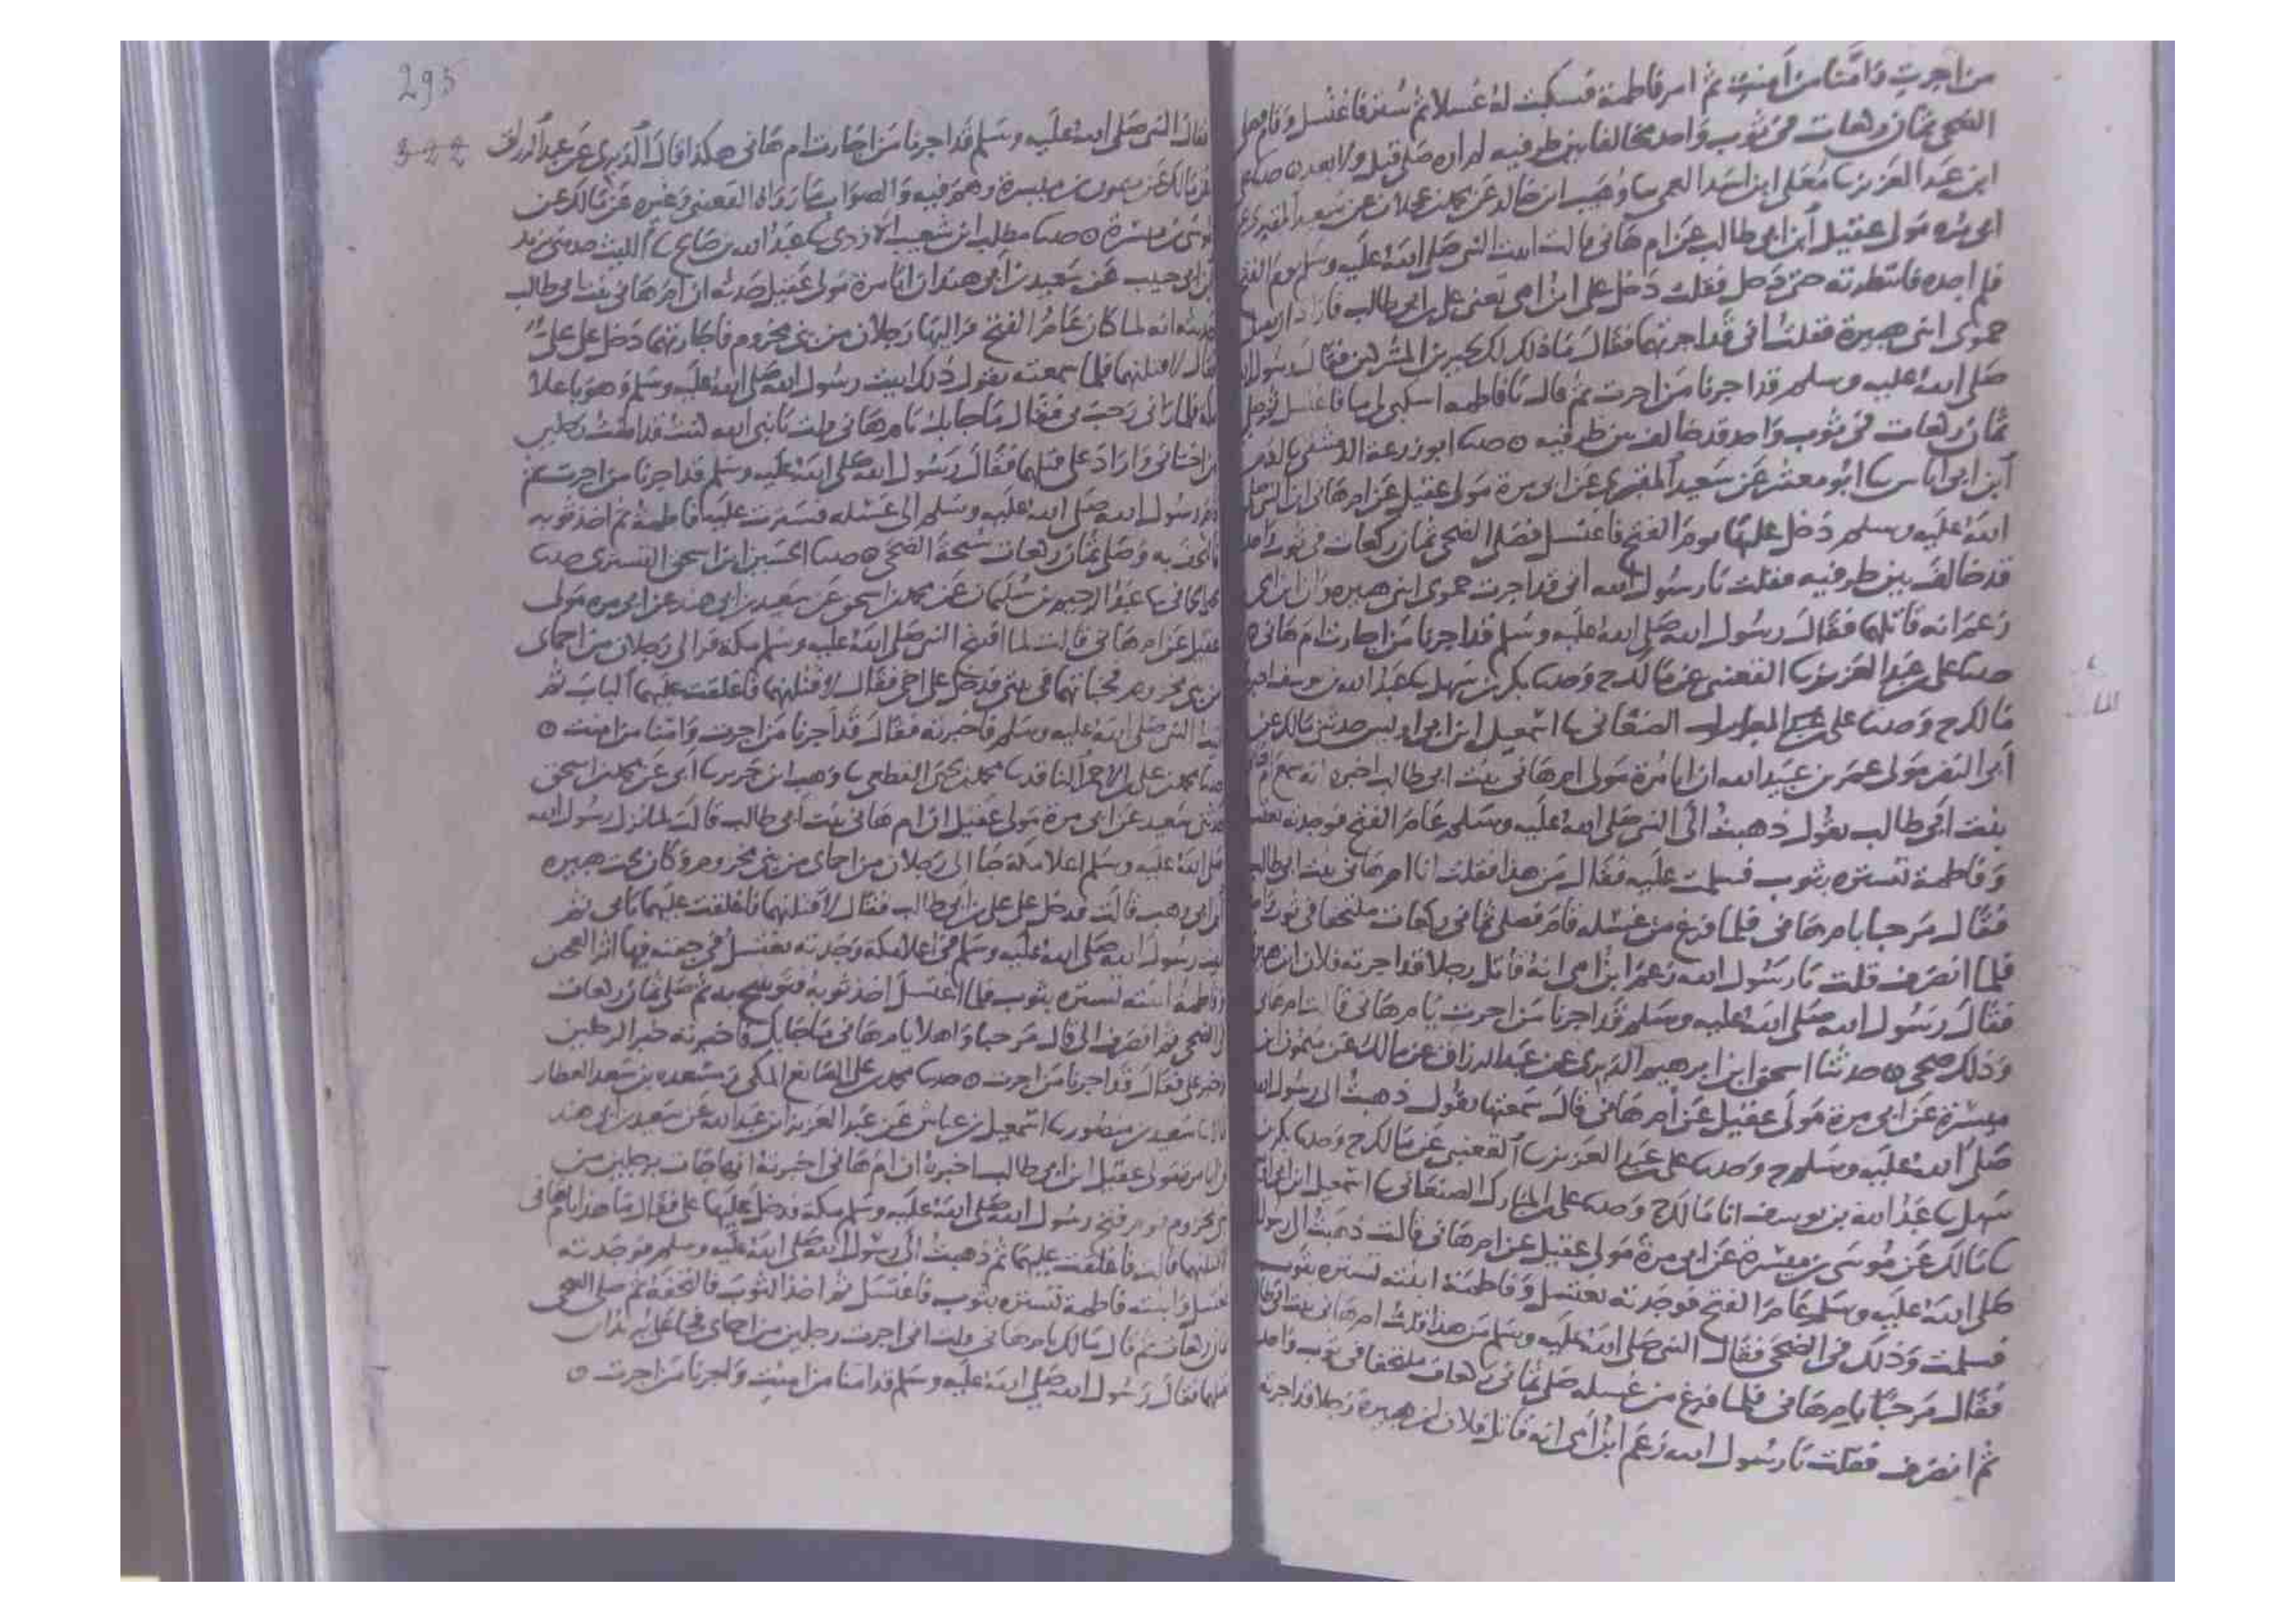 من اجرت وامنا من امنت ثم امر فاطمة فسكبت له غسلا ثم ستر فاغتسل وقام فصلى
الضحى ثمان ركعات في ثوب واحد مخالفا بين طرفيه لم اره صلى قبل ولا بعد ۞ حدثنا على
ابن عبد العزيز ثنا معلى ابن اسد العمي ثنا وهيب ابن خالد عن محمد بن عجلان عن سعيد المقبري عن
ابي مره مولى عقيل ابن ابي طالب عن ام هانى قالت اتيت النبي صلى الله عليه وسلم يوم الفتح
فلم اجده فانتظرته حتى دخل فقلت دخل على ابن امي يعني علي ابن ابي طالب فاراد ان يقتل
حموى ابني هبيرة فقلت اني قد اجرتهما فقال ما ذلك لك يجير من المشركين فقال رسول الله
صلى الله عليه وسلم قد اجرنا من اجرت ثم قال يا فاطمه اسكبي لي ما فاغتسل ثم صلى
ثمان ركعات في ثوب واحد قد خالف بين طرفيه ۞ حدثنا ابو زرعة الدمشقي ثنا ادم
ابن ابي اياس ثنا ابو معشر عن سعيد المقبري عن ابي مرة مولى عقيل عن ام هانى ان النبي صلى
الله عليه وسلم دخل عليها يوم الفتح فاغتسل فصلى الضحى ثمان ركعات في ثوب واحد
قد خالف بين طرفيه فقلت يا رسول الله اني قد اجرت حموى ابني هبيره وان ابن امي
زعم انه قاتلهما فقال رسول الله صلى الله عليه وسلم قد اجرنا من اجارت ام هانى ۞
حدثنا على بن عبد العزيز ثنا القعنبي عن مالك ح وحدثنا بكر بن سهل ثنا عبد الله بن يوسف انا
مالك ح وحدثنا على الصنعاني ثنا اسمعيل ابن ابي اويس حدثني مالك عن
ابي النضر مولى عمر بن عبيد الله ان ابا مرة مولى ام هانى بنت ابي طالب اخبره انه سمع ام هانى
بنت ابي طالب يقول ذهبت الى النبي صلى الله عليه وسلم عام الفتح فوجدته يغتسل
وفاطمة تستره بثوب فسلمت عليه فقال من هذا فقلت انا ام هانى بنت ابي طالب
فقال مرحبا بام هانى فلما فرغ من غسله قام فصلى ثماني ركعات ملتحفا في ثوب واحد
فلما انصرف قلت يا رسول الله زعم ابن امي انه قاتل رجلا قد اجرته فلان ابن هبيرة
فقال رسول الله صلى الله عليه وسلم قد اجرنا من اجرت يا ام هانى قالت ام هانى
وذلك ضحى ۞ حدثنا اسحق ابن ابرهيم الدبري عن عبد الرزاق عن مالك عن ميمون ابن
ميسرة عن ابي مرة مولى عقيل عن ام هانى قال سمعتها يقول ذهبت الى رسول الله
صلى الله عليه وسلم ح وحدثنا على بن عبد العزيز ثنا القعنبي عن مالك ح وحدثنا بكر بن
سهل ثنا عبد الله بن يوسف انا مالك ح وحدثنا على ابن المبارك الصنعاني ثنا اسمعيل ابن ابي
ثنا مالك عن موسى بن ميسرة عن ابي مرة مولى عقيل عن ام هانى قالت ذهبت الى رسول الله
صلى الله عليه وسلم عام الفتح فوجدته يغتسل وفاطمة ابنته تستره بثوب
فسلمت وذلك في الضحى فقال النبي صلى الله عليه وسلم من هذا قلت ام هانى بنت ابي طالب
فقال مرحبا بام هانى فلما فرغ من غسله صلى ثماني ركعات ملتحفا في ثوب واحد
ثم انصرف فقلت يا رسول الله زعم ابن امي انه قاتل فلان ابن هبيرة رجلا قد اجرته
295
322
فقال النبي صلى الله عليه وسلم قد اجرنا من اجارت ام هانى هكذا قال الدبري عن عبد الرزاق
عن مالك عن ميمون بن ميسرة وهم فيه والصواب ما رواه القعنبي وغيره عن مالك عن
موسى بن ميسرة ۞ حدثنا مطلب ابن شعيب الازدي ثنا عبد الله بن صالح ثنا الليث حدثني يزيد
بن ابي حبيب عن سعيد بن ابي هند ان ابا مرة مولى عقيل حدثه ان ام هانى بنت ابي طالب
حدثته انه لما كان عام الفتح فر اليها رجلان من بني مخزوم فاجارتهما دخل على علي
فقال لاقتلنهما فلما سمعته يقول ذلك اتيت رسول الله صلى الله عليه وسلم وهو باعلا
مكة فلما راني رحب بي فقال ما جا بك يا ام هانى قلت يا نبي الله كنت قد امنت رجلين
من احمائي واراد على قتلهما فقال رسول الله صلى الله عليه وسلم قد اجرنا من اجرت ثم
قام رسول الله صلى الله عليه وسلم الى غسله فسترت عليه فاطمة ثم اخذ ثوبه
فالتحف به وصلى ثمان ركعات سبحة الضحى ۞ حدثنا الحسين ابن اسحق التستري حدثنا
ثنا عبد الرحيم بن سليمان عن محمد بن اسحق عن سعيد بن ابي هند عن ابي مره مولى
عقيل عن ام هانى قالت لما افتتح النبي صلى الله عليه وسلم مكة فر الى رجلان من احماي
من بني مخزوم فخباتهما في بيتي فدخل على اخي فقال لاقتلنهما فاغلقت عليهما الباب ثم
اتيت النبي صلى الله عليه وسلم فاخبرته فقال قد اجرنا من اجرت وامنا من امنت ۞
حدثنا محمد بن علي الاحمر الناقد ثنا محمد بن يحيى القطعي ثنا وهب ابن جرير ثنا ابي عن محمد بن اسحق
حدثني سعيد عن ابي مرة مولى عقيل ان ام هانى بنت ابي طالب قالت لما نزل رسول الله
صلى الله عليه وسلم اعلا مكة جا الى رجلان من احماى من بني مخزوم وكان تحت هبيره
ابن ابي وهب قالت فدخل على علي بن ابي طالب فقال لاقتلنهما فاغلقت عليهما بابي ثم
اتيت رسول الله صلى الله عليه وسلم في اعلا مكة وجدته يغتسل في جفنه فيها اثر العجين
وفاطمة ابنته تستره بثوب فلما اغتسل اخذ ثوبه فتوشح به ثم صلى ثمان ركعات
من الضحى ثم انصرف الى قال مرحبا واهلا يا ام هانى ما جا بك فاخبرته خبر الرجلين
وخبر علي فقال قد اجرنا من اجرت ۞ حدثنا محمد بن علي الصائغ المكي ثنا مسعده بن سعد العطار
قالا ثنا سعيد بن منصور ثنا اسمعيل بن عياش عن عبد العزيز ابن عبد الله عن سعيد بن ابي هند
ان ابا مره مولى عقيل ابن ابي طالب اخبره ان ام هانى اخبرته انها جات برجلين من
بني مخزوم يوم فتح رسول الله صلى الله عليه وسلم مكة فدخل عليها على فقال ما هذا يا ام هانى
لاقتلنهما قالت فاغلقت عليهما ثم ذهبت الى رسول الله صلى الله عليه وسلم فوجدته
يغتسل وابنته فاطمة تستره بثوب فاغتسل ثم اخذ الثوب فالتحفه ثم صلى الضحى
ثمان ركعات ثم قال مالك يا ام هانى قلت اني اجرت رجلين من احماي فجا على يريد
قتلهما فقال رسول الله صلى الله عليه وسلم قد امنا من امنت واجرنا من اجرت ۞